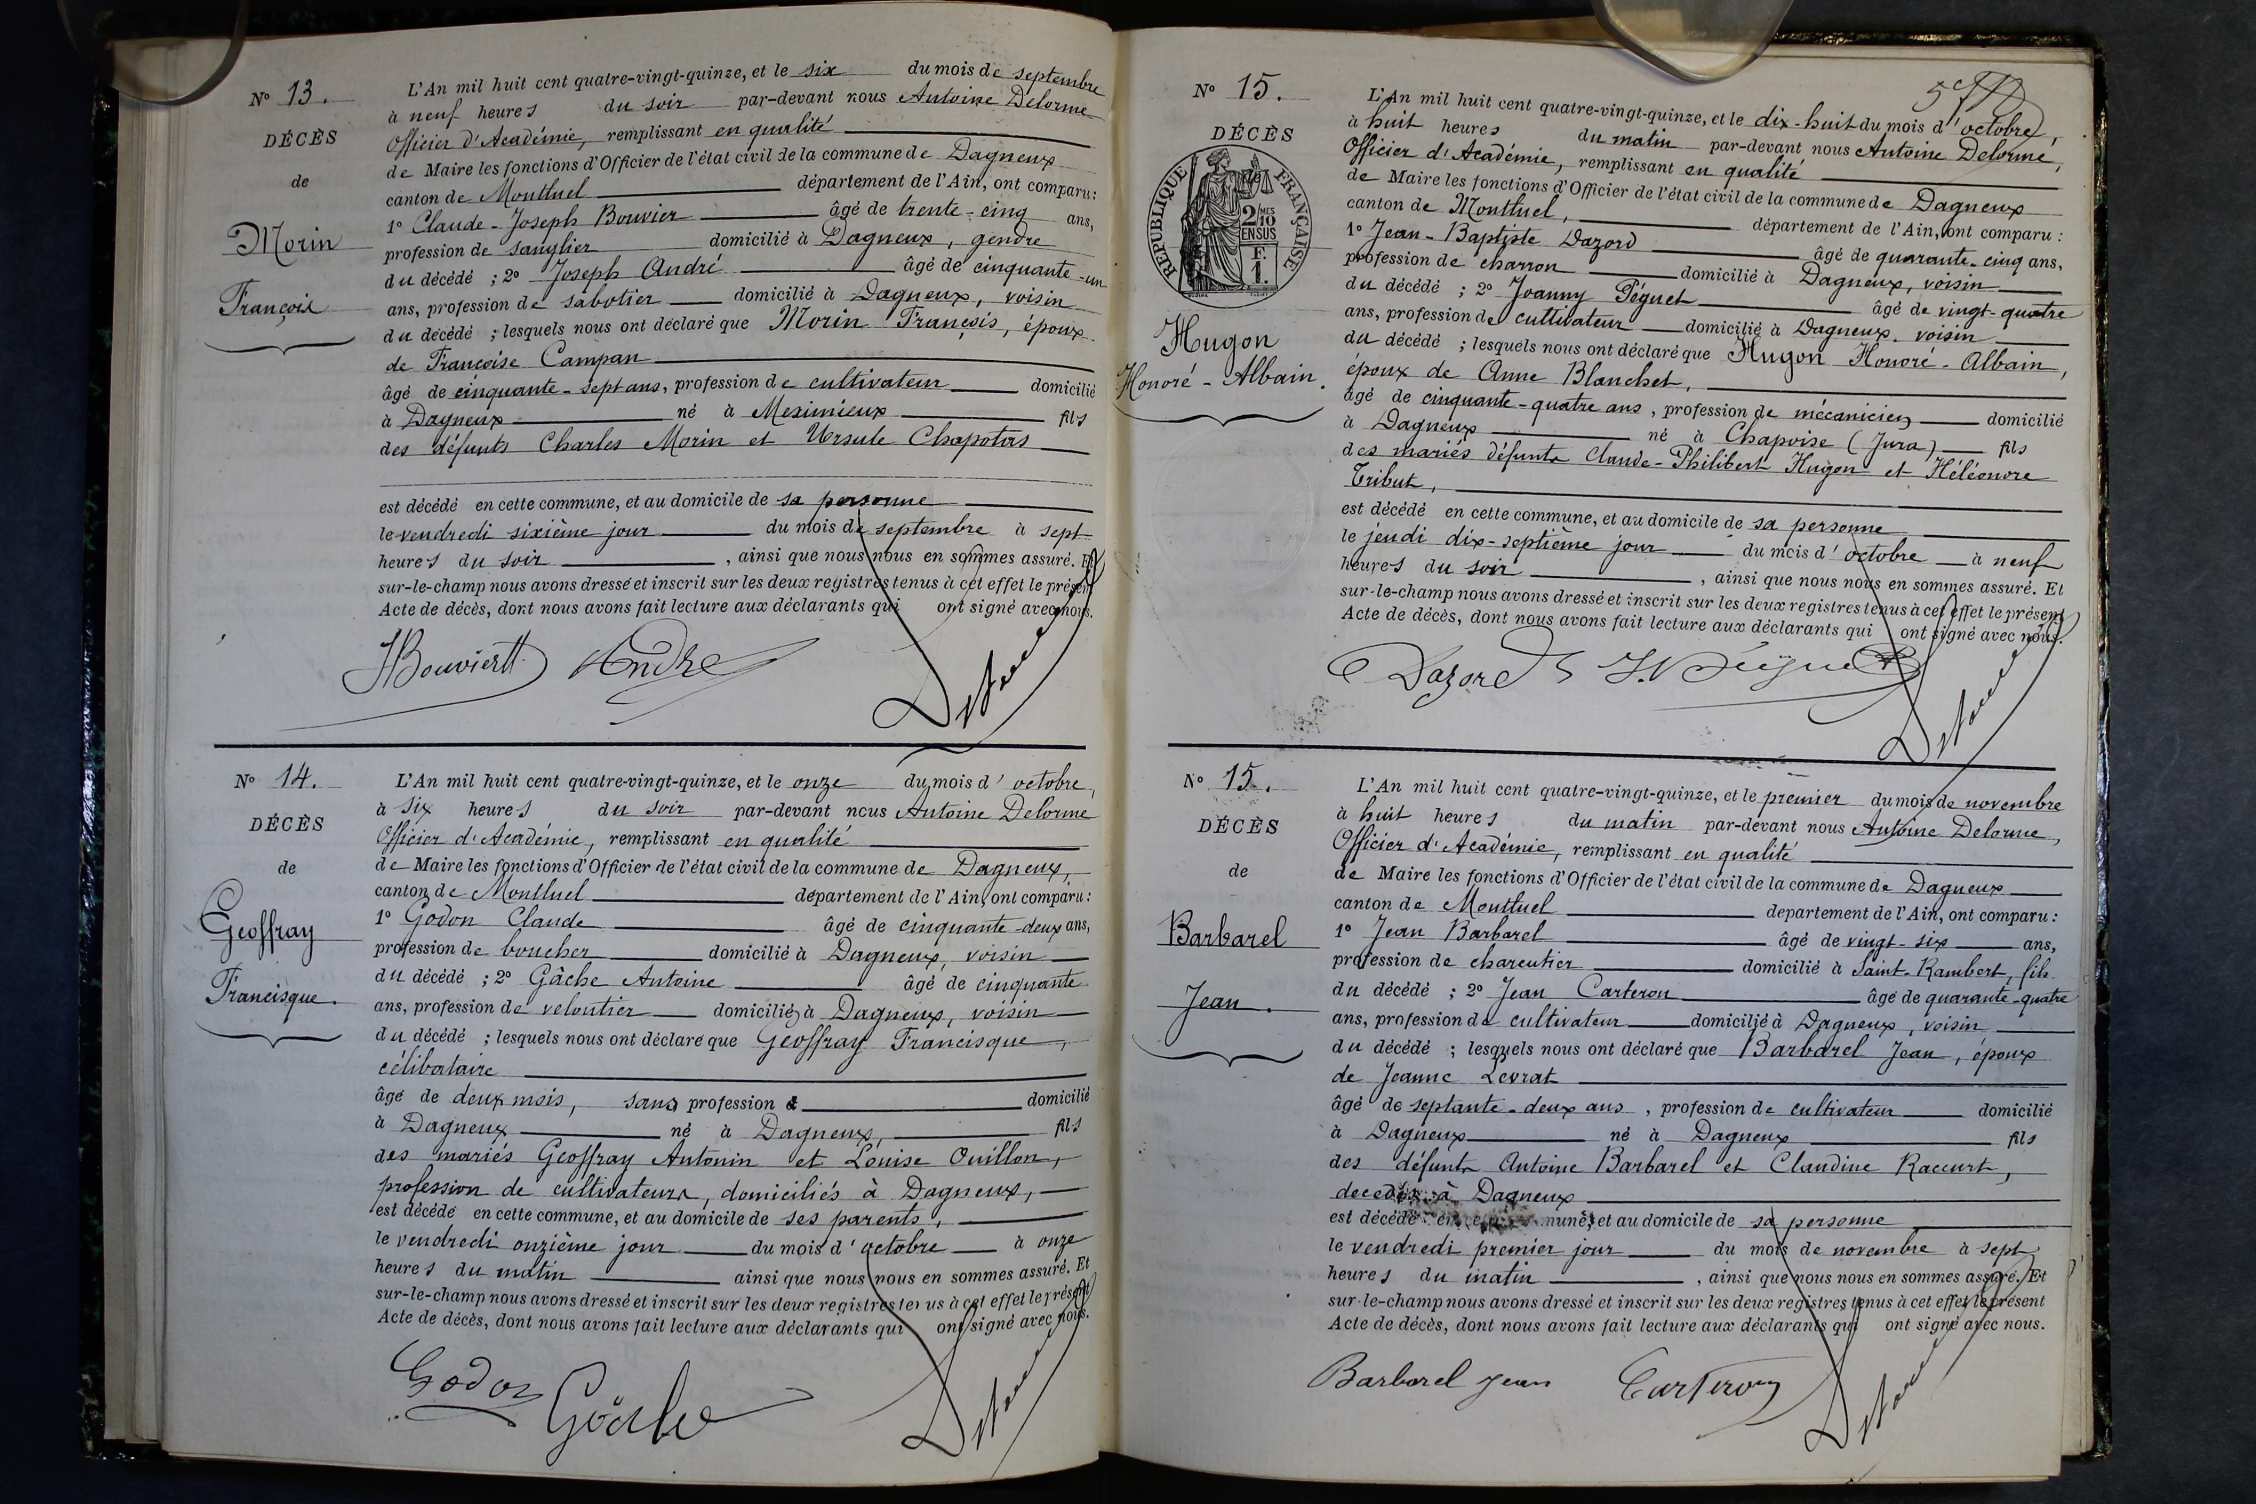 Nº 13.
DÉCÈS
de
Morin
François
L'An mil huit cent quatre-vingt-quinze, et le six du mois de septembre
à neuf heures du soir par-devant nous Antoine Delorme
Officier d'Académie, remplissant en qualité
de Maire les fonctions d'Officier de l'état civil de la commune de Dagneux
canton de Montluel département de l'Ain, ont comparu:
1º Claude-Joseph Bouvier âgé de trente-cinq ans,
profession de domicilié à Dagneux, gendre
du décédé ; 2º Joseph André âgé de cinquante-un
ans, profession de sabotier domicilié à Dagneux, voisin
du décédé ; lesquels nous ont déclaré que Morin François, époux
de Françoise Campan
âgé de cinquante-sept ans, profession de cultivateur domicilié
à Dagneux né à Meximieux fils
des défunts Charles Morin et Ursule Chapotas
est décédé en cette commune, et au domicile de sa personne
le vendredi sixième jour du mois de septembre à sept
heures du soir , ainsi que nous nous en sommes assuré. Et
sur-le-champ nous avons dressé et inscrit sur les deux registres tenus à cet effet le présent
Acte de décès, dont nous avons fait lecture aux déclarants qui ont signé avec nous.
JBouvier André Delorme
Nº 14.
DÉCÈS
de
Geoffray
Francisque.
L'An mil huit cent quatre-vingt-quinze, et le onze du mois d'octobre,
à six heures du soir par-devant nous Antoine Delorme
Officier d'Académie, remplissant en qualité
de Maire les fonctions d'Officier de l'état civil de la commune de Dagneux,
canton de Montluel département de l'Ain, ont comparu:
1º Godon Claude âgé de cinquante-deux ans,
profession de boucher domicilié à Dagneux, voisin
du décédé ; 2º Gâche Antoine âgé de cinquante
ans, profession de veloutier domicilié à Dagneux, voisin
du décédé ; lesquels nous ont déclaré que Geoffray Francisque,
célibataire
âgé de deux mois, sans profession domicilié
à Dagneux né à Dagneux, fils
des mariés Geoffray Antonin et Louise Ouillon,
profession de cultivateurs, domiciliés à Dagneux,
est décédé en cette commune, et au domicile de ses parents,
le vendredi onzième jour du mois d'octobre à onze
heures du matin ainsi que nous nous en sommes assuré. Et
sur-le-champ nous avons dressé et inscrit sur les deux registres tenus à cet effet le présent
Acte de décès, dont nous avons fait lecture aux déclarants qui ont signé avec nous.
Godon Gâche Delorme
Nº 15.
DÉCÈS
RÉPUBLIQUE FRANÇAISE
2/10MES
EN SUS
F.
1.
Hugon
Honoré-Albain.
L'An mil huit cent quatre-vingt-quinze, et le dix-huit du mois d'octobre,
à huit heures du matin par-devant nous Antoine Delorme,
Officier d'Académie, remplissant en qualité
de Maire les fonctions d'Officier de l'état civil de la commune de Dagneux
canton de Montluel, département de l'Ain, ont comparu :
1º Jean-Baptiste Dazord âgé de quarante-cinq ans,
profession de charron domicilié à Dagneux, voisin
du décédé ; 2º Joanny Péguet âgé de vingt-quatre
ans, profession de cultivateur domicilié à Dagneux, voisin
du décédé ; lesquels nous ont déclaré que Hugon Honoré-Albain,
époux de Anne Blanchet,
âgé de cinquante-quatre ans, profession de mécanicien domicilié
à Dagneux né à Chapoise (Jura) fils
des mariés défunts Claude-Philibert Hugon et Héléonore
Tribut,
est décédé en cette commune, et au domicile de sa personne
le jeudi dix-septième jour du mois d'octobre à neuf
heures du soir , ainsi que nous nous en sommes assuré. Et
sur-le-champ nous avons dressé et inscrit sur les deux registres tenus à cet effet le présent
Acte de décès, dont nous avons fait lecture aux déclarants qui ont signé avec nous.
Dazord Péguet Delorme
Nº 15.
DÉCÈS
de
Barbarel
Jean.
L'An mil huit cent quatre-vingt-quinze, et le premier du mois de novembre
à huit heures du matin par-devant nous Antoine Delorme,
Officier d'Académie, remplissant en qualité
de Maire les fonctions d'Officier de l'état civil de la commune de Dagneux
canton de Montluel département de l'Ain, ont comparu :
1º Jean Barbarel âgé de vingt-six ans,
profession de charcutier domicilié à Saint-Rambert, fils
du décédé ; 2º Jean Carteron âgé de quarante-quatre
ans, profession de cultivateur domicilié à Dagneux, voisin
du décédé ; lesquels nous ont déclaré que Barbarel Jean, époux
de Jeanne Levrat
âgé de septante-deux ans, profession de cultivateur domicilié
à Dagneux né à Dagneux fils
des défunts Antoine Barbarel et Claudine Raccurt,
décédés à Dagneux
est décédé en cette commune, et au domicile de sa personne
le vendredi premier jour du mois de novembre à sept
heures du matin , ainsi que nous nous en sommes assuré. Et
sur-le-champ nous avons dressé et inscrit sur les deux registres tenus à cet effet le présent
Acte de décès, dont nous avons fait lecture aux déclarants qui ont signé avec nous.
Barbarel Jean Carteron Delorme